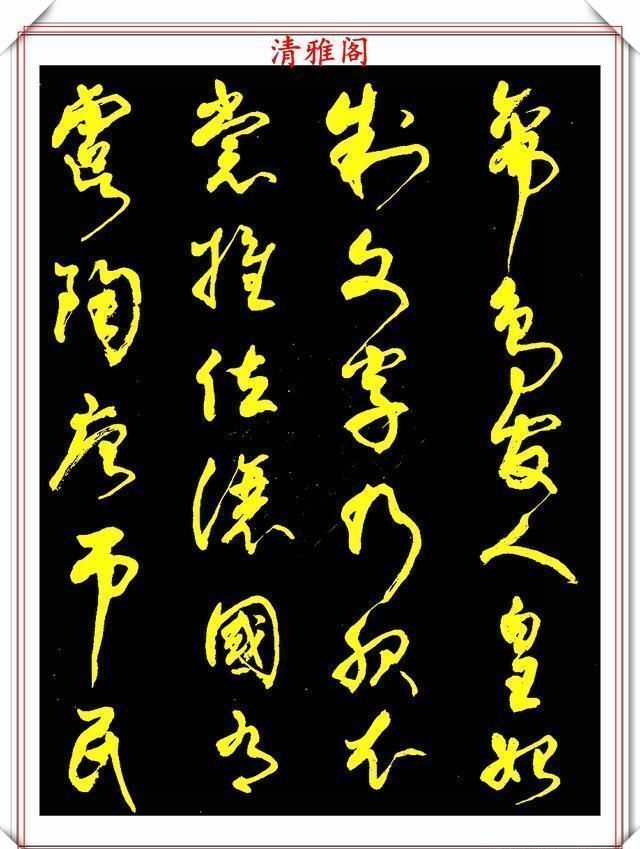 清雅阁
帝鸟官人皇始
制文字乃服衣
裳推位让國有
虞陶唐吊民